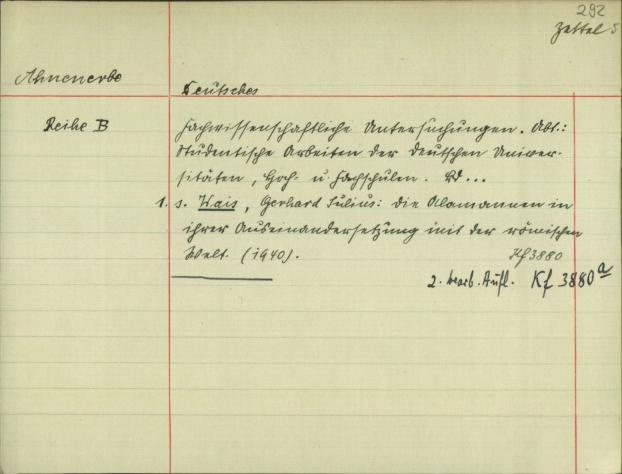 292
Zettel 5
Ahnenerbe
Deutsches
Reihe B
Fachwissenschaftliche Untersuchungen. Abt.:
Studentische Arbeiten der deutschen Univer-
sitäten, Hoch- u. Fachschulen. Bd...
1. s. Wais, Gerhard Julius: Die Alamannen in
ihrer Auseinandersetzung mit der römischen
Welt. (1940).
Kf 3880
2. bearb. Aufl. Kf 3880a